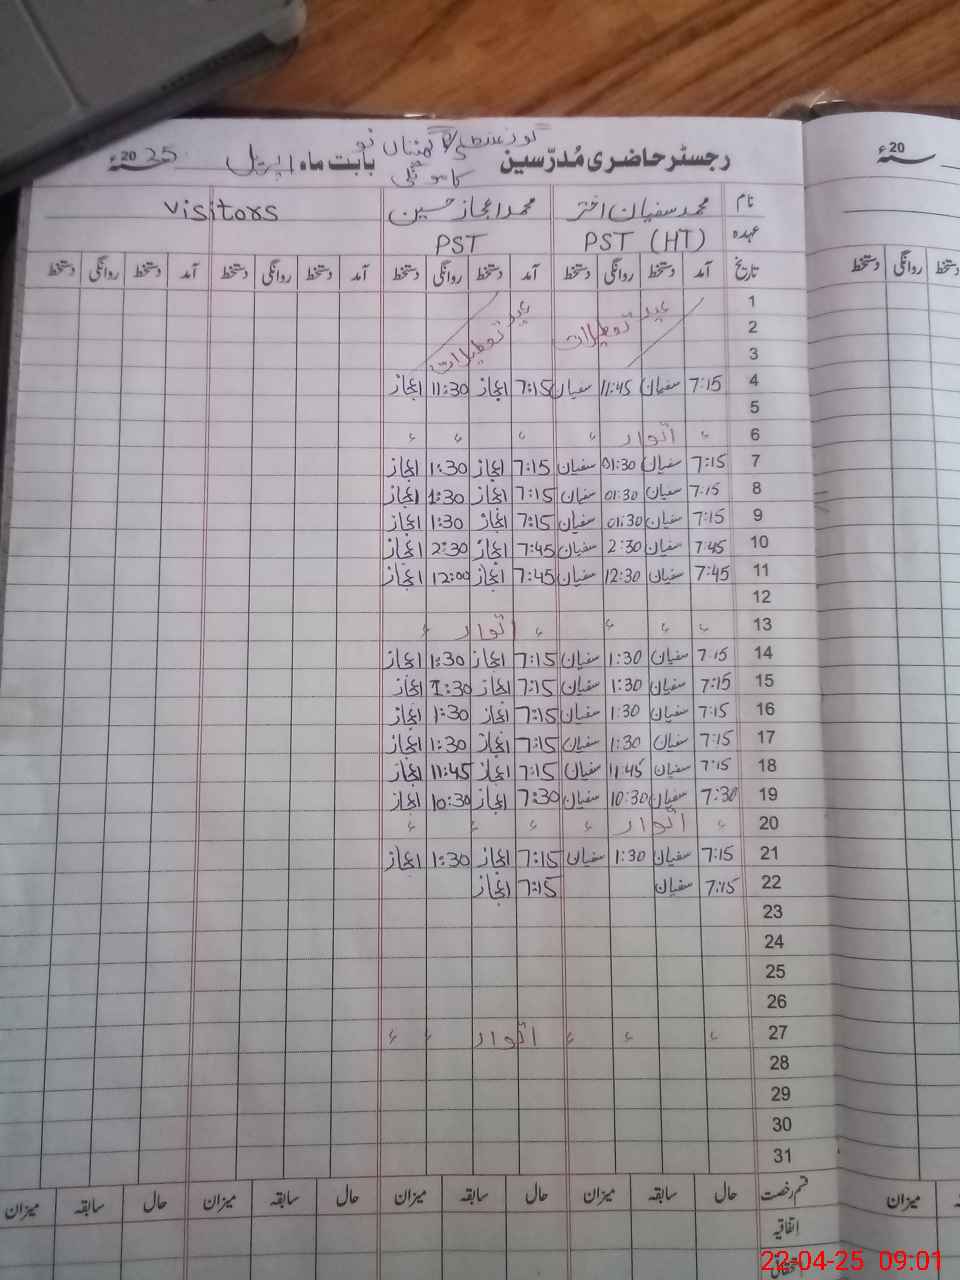 رجسٹر حاضری مُدرّسین بابت ماہ اپریل 2025ء
20ء
نام محمد سفیان اختر محمد اعجاز حسین visitors
عہدہ PST (HT) PST
تاریخ آمد دستخط روانگی دستخط آمد دستخط روانگی دستخط آمد دستخط روانگی دستخط آمد دستخط روانگی دستخط
دستخط روانگی دستخط
1
2 عید تعطیلات عید تعطیلات
3
4 7:15 سفیان 11:45 سفیان 7:15 اعجاز 11:30 اعجاز
5
6 اتوار
7 7:15 سفیان 01:30 سفیان 7:15 اعجاز 1:30 اعجاز
8 7:15 سفیان 01:30 سفیان 7:15 اعجاز 1:30 اعجاز
9 7:15 سفیان 01:30 سفیان 7:15 اعجاز 1:30 اعجاز
10 7:45 سفیان 2:30 سفیان 7:45 اعجاز 2:30 اعجاز
11 7:45 سفیان 12:30 سفیان 7:45 اعجاز 12:00 اعجاز
12
13 اتوار
14 7:15 سفیان 1:30 سفیان 7:15 اعجاز 1:30 اعجاز
15 7:15 سفیان 1:30 سفیان 7:15 اعجاز 1:30 اعجاز
16 7:15 سفیان 1:30 سفیان 7:15 اعجاز 1:30 اعجاز
17 7:15 سفیان 1:30 سفیان 7:15 اعجاز 1:30 اعجاز
18 7:15 سفیان 11:45 سفیان 7:15 اعجاز 11:45 اعجاز
19 7:30 سفیان 10:30 سفیان 7:30 اعجاز 10:30 اعجاز
20 اتوار
21 7:15 سفیان 1:30 سفیان 7:15 اعجاز 1:30 اعجاز
22 7:15 سفیان 7:15 اعجاز
23
24
25
26
27 اتوار
28
29
30
31
قسم رخصت حال سابقہ میزان حال سابقہ میزان حال سابقہ میزان حال سابقہ میزان
میزان
اتفاقیہ
22-04-25 09:01